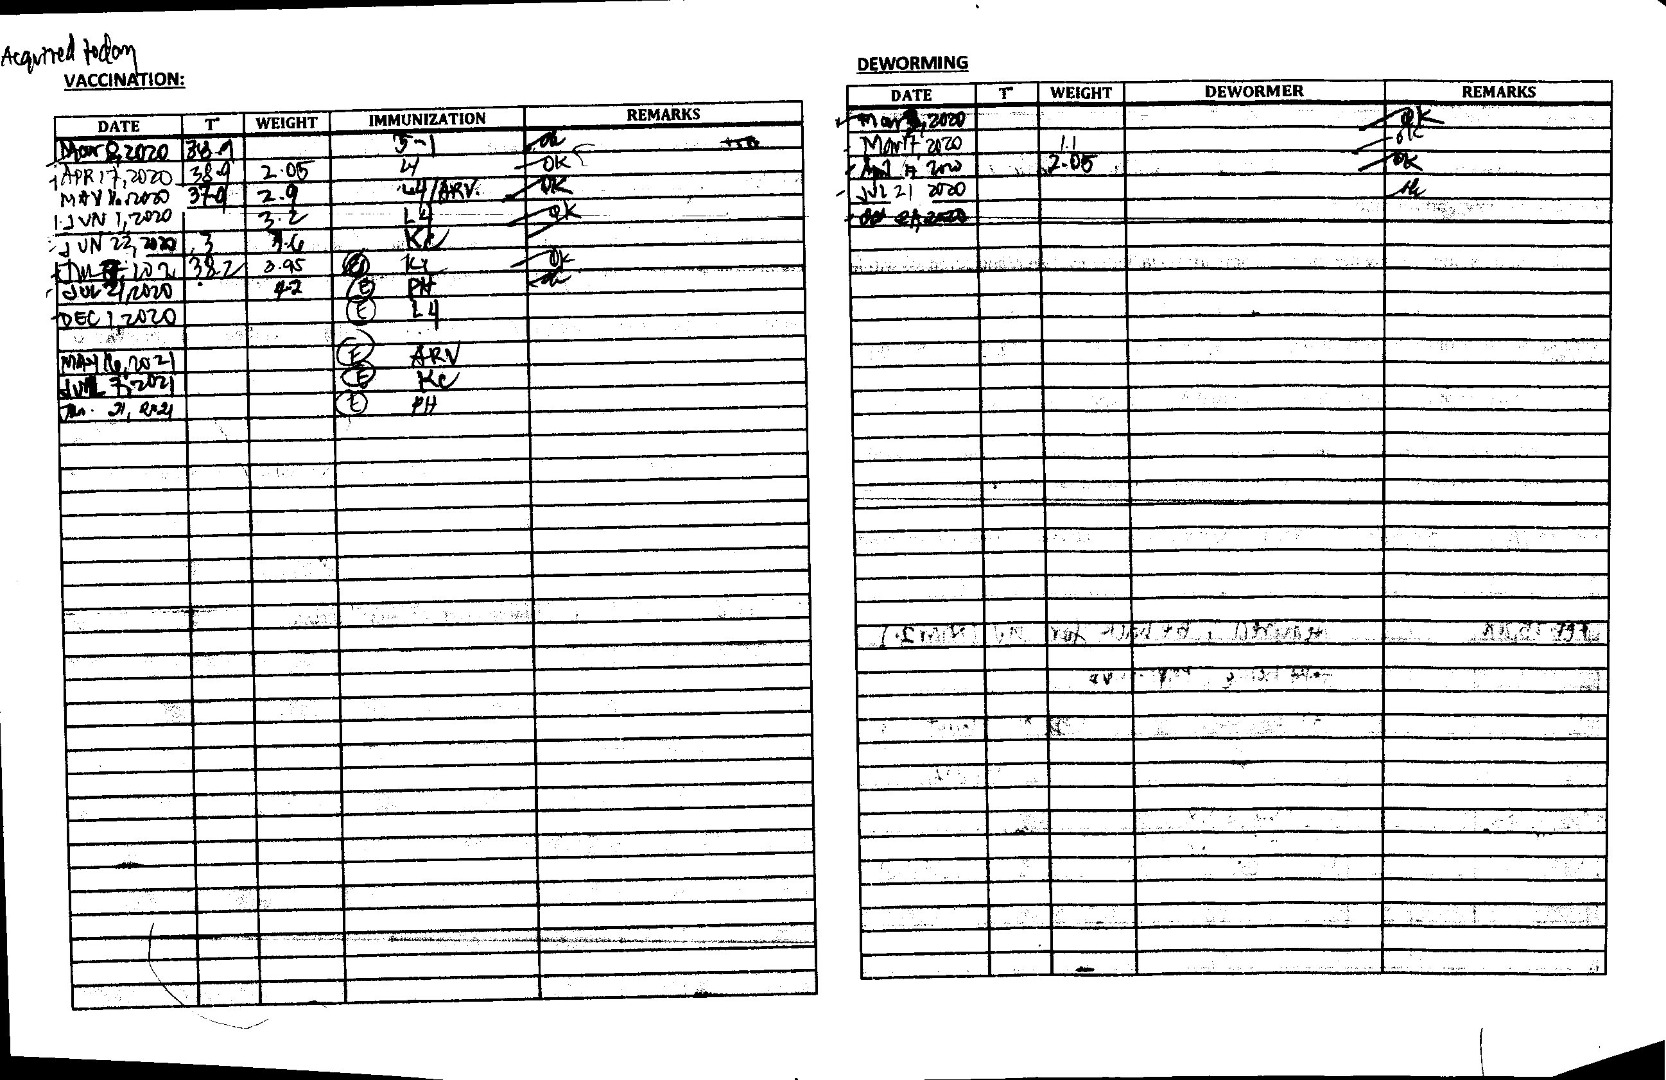 Acquired today
VACCINATION:
DATE T° WEIGHT IMMUNIZATION REMARKS
Mar 8, 2020 38.9 5-1 ok
APR 17, 2020 38.9 2.05 L4 OK
MAY 2020 37.9 2.9 L4/ARV. OK
JUN 1, 2020 3.2 L4 OK
JUN 22, 2020 3.6 KC
38.2 3.95 KC ok
JUL 21, 2020 4.2 E PH ok
DEC 1, 2020 E L4
MAY 16, 2021 E ARV
7, 2021 E KC
21, 2021 E PH
DEWORMING
DATE T° WEIGHT DEWORMER REMARKS
Mar 2020 OK
Mar 17, 2020 1.1 ok
2020 2.05 OK
JUL 21 2020 ok
2020